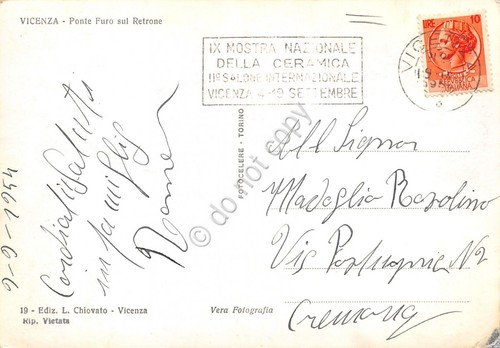 VICENZA - Ponte Furo sul Retrone
IX MOSTRA NAZIONALE
DELLA CERAMICA
IIº SALONE INTERNAZIONALE
VICENZA 4-19 SETTEMBRE
VICENZA
LIRE 10
ITALIANA
9-9-1954
Cordiali Saluti
in famiglia
FOTOCELERE - TORINO
All Signor
Madoglia Rosolino
Via
Nº 2
Cremona
19 - Ediz. L. Chiovato - Vicenza
Rip. Vietata
Vera Fotografia
do not copy